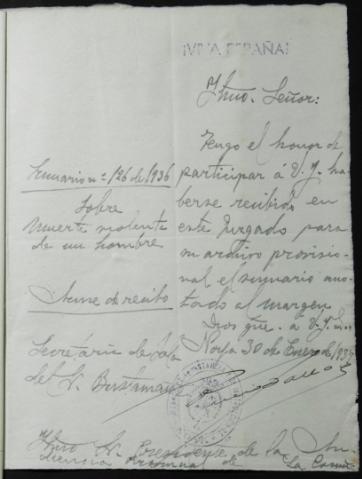 ¡VIVA ESPAÑA!
Iltmo. Señor:
Tengo el honor de
participar á V. I. ha-
berse recibido en
este Juzgado para
su archivo provisio-
nal el sumario ano-
tado al margen
Dios gue. á V. I. m. a.
Noya 30 de Enero de 193
Sumario nº 126 de 1936
Sobre
Muerte violenta
de un hombre
Acuse de recibo
Secretaría de Sala
del Sr. Bustamante
Iltmo Sr. Presidente de la Au-
diencia Provincial de La Coruña